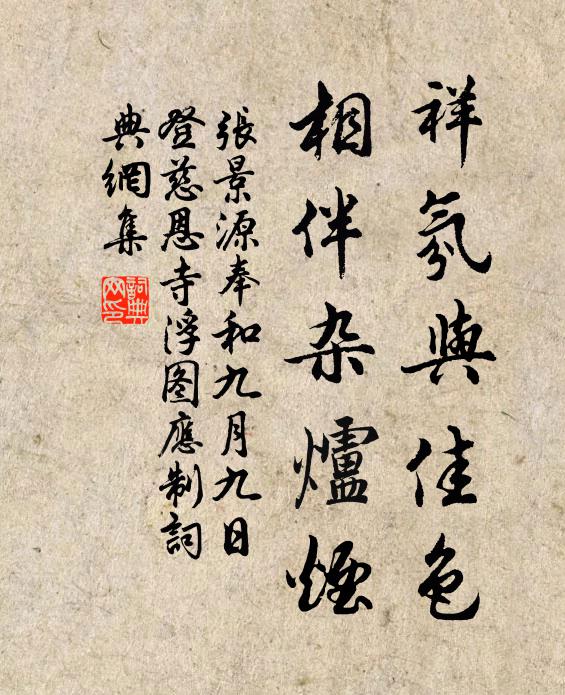 祥氛與佳色
相伴杂爐煙
張景源奉和九月九日
登慈恩寺浮图應制詞
典網集
詞典
网印